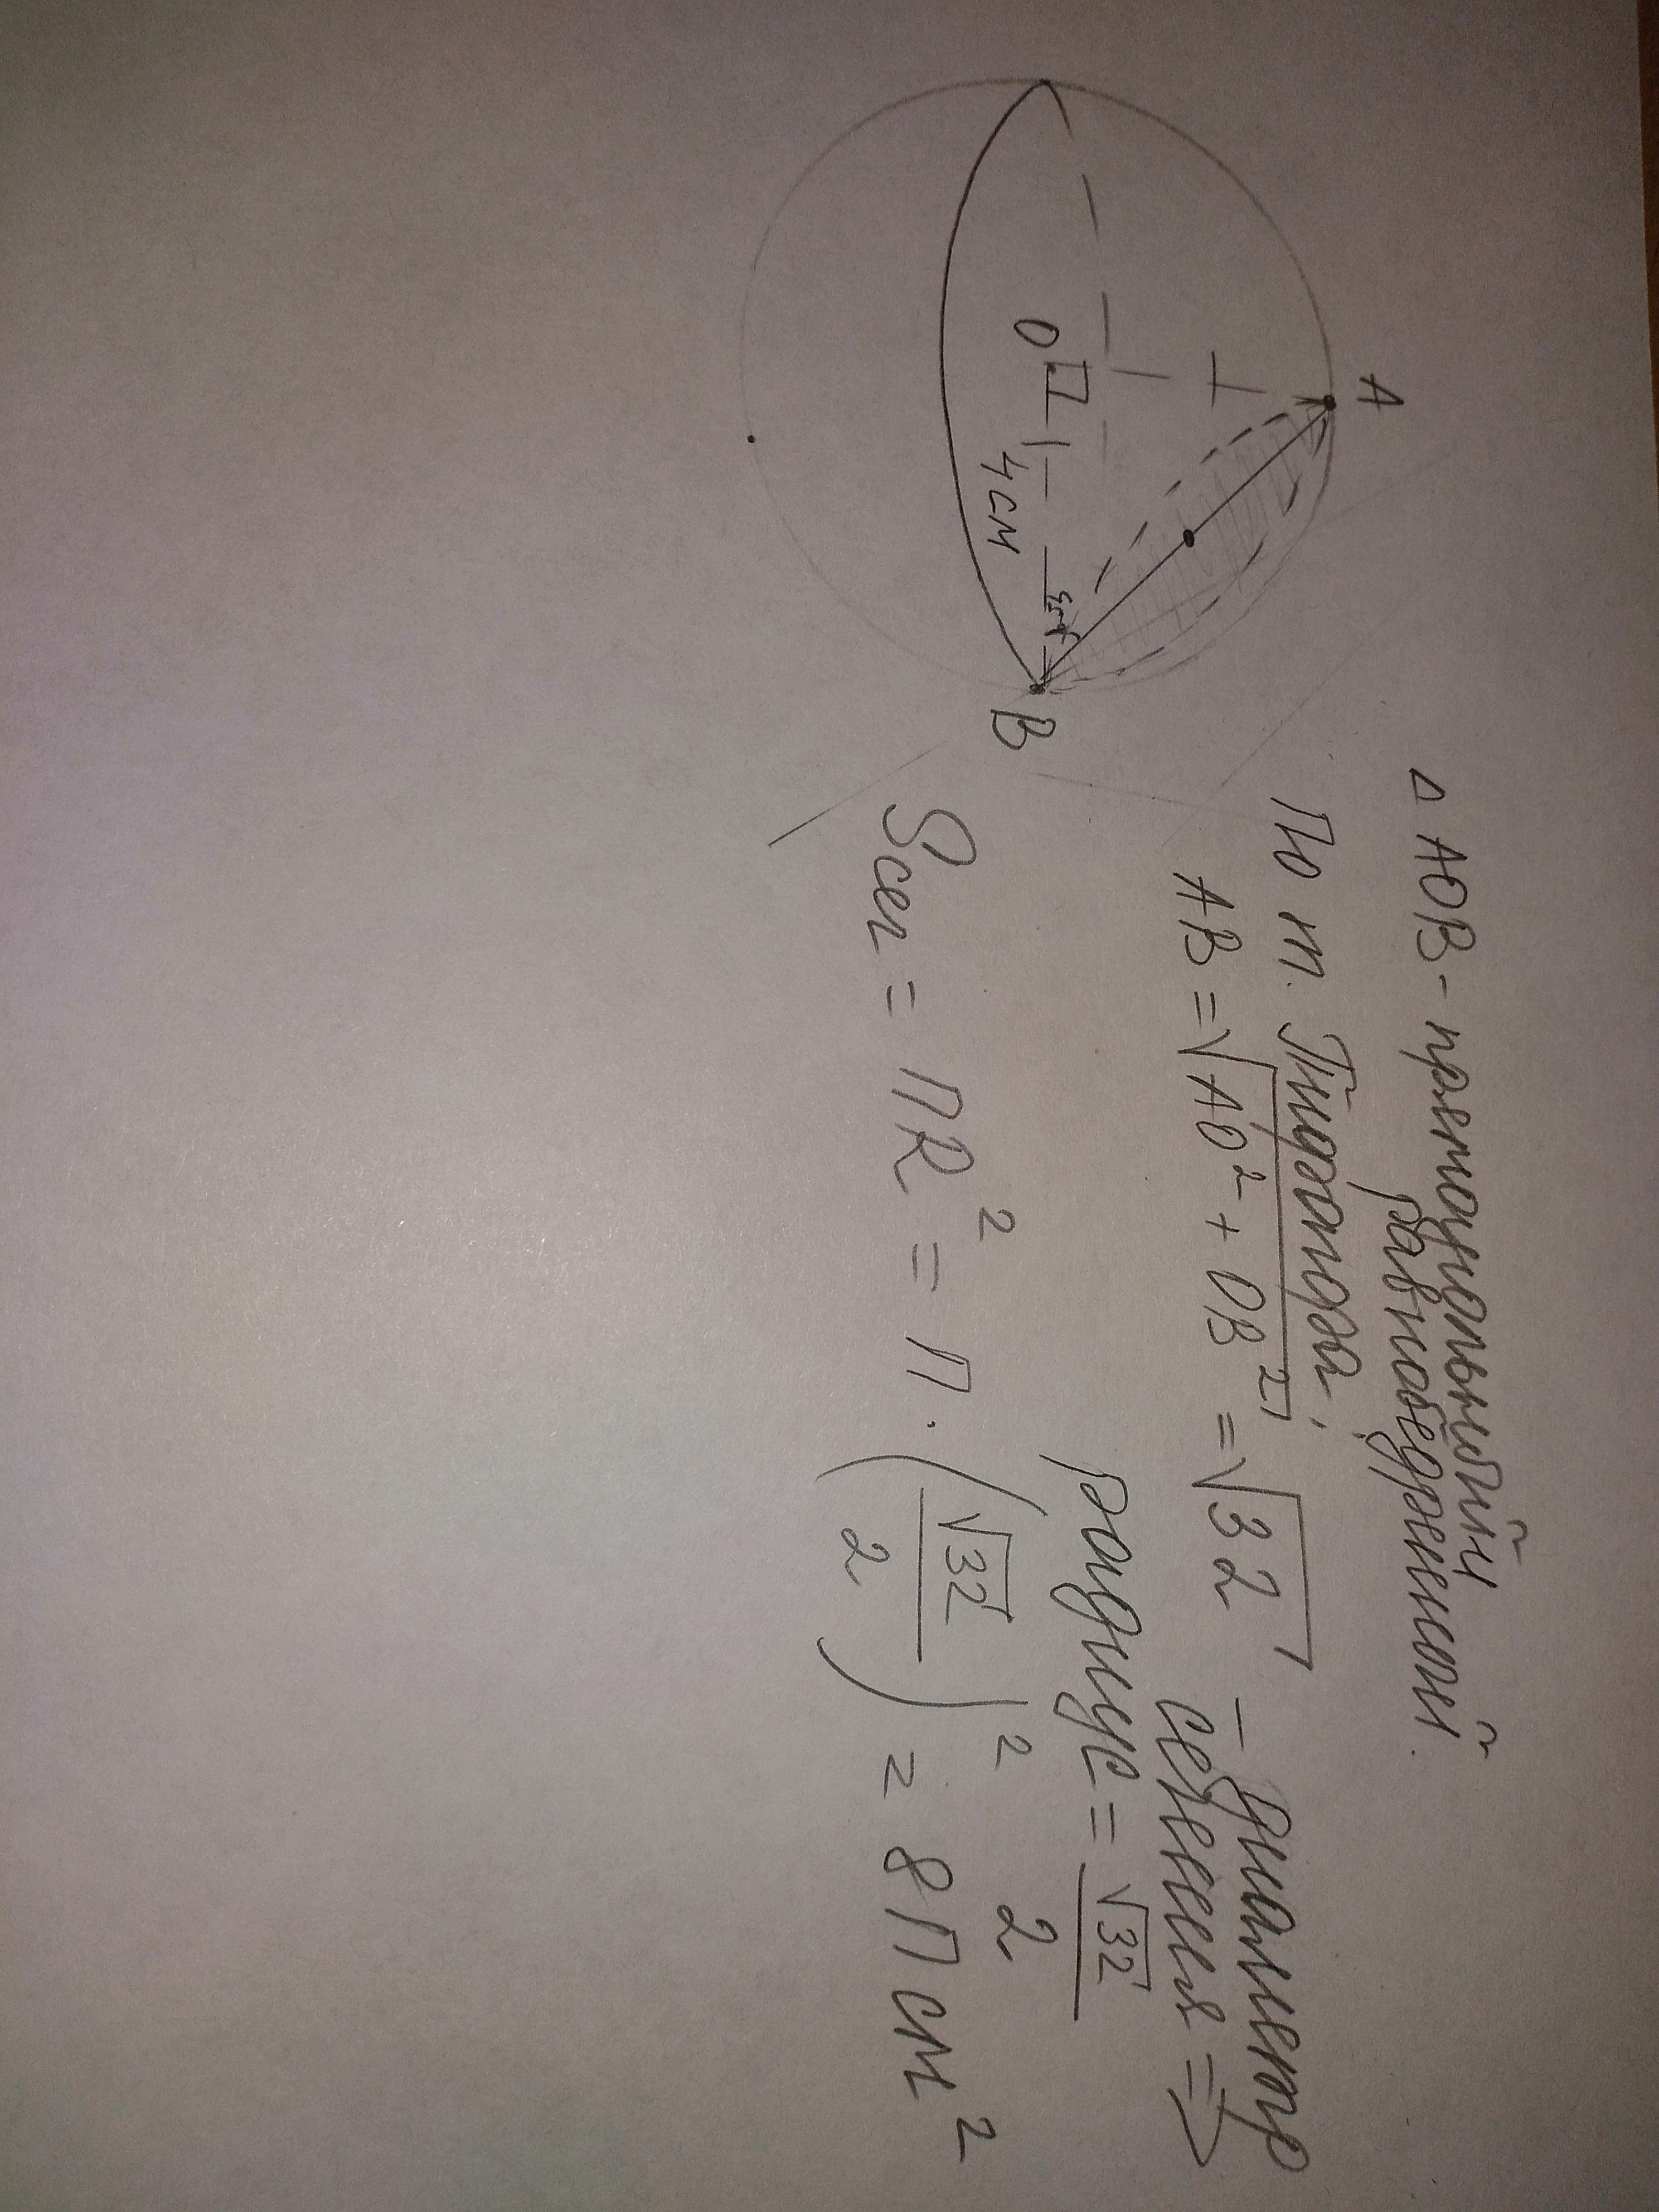 A
O
4 см
45°
B
△ AOB - прямоугольный
равнобедренный.
По т. Пифагора:
AB = √AO² + OB² = √32 - диаметр
сечения =>
радиус = √32
2
Sсеч = ПR² = П · (√32 / 2)² = 8П см²